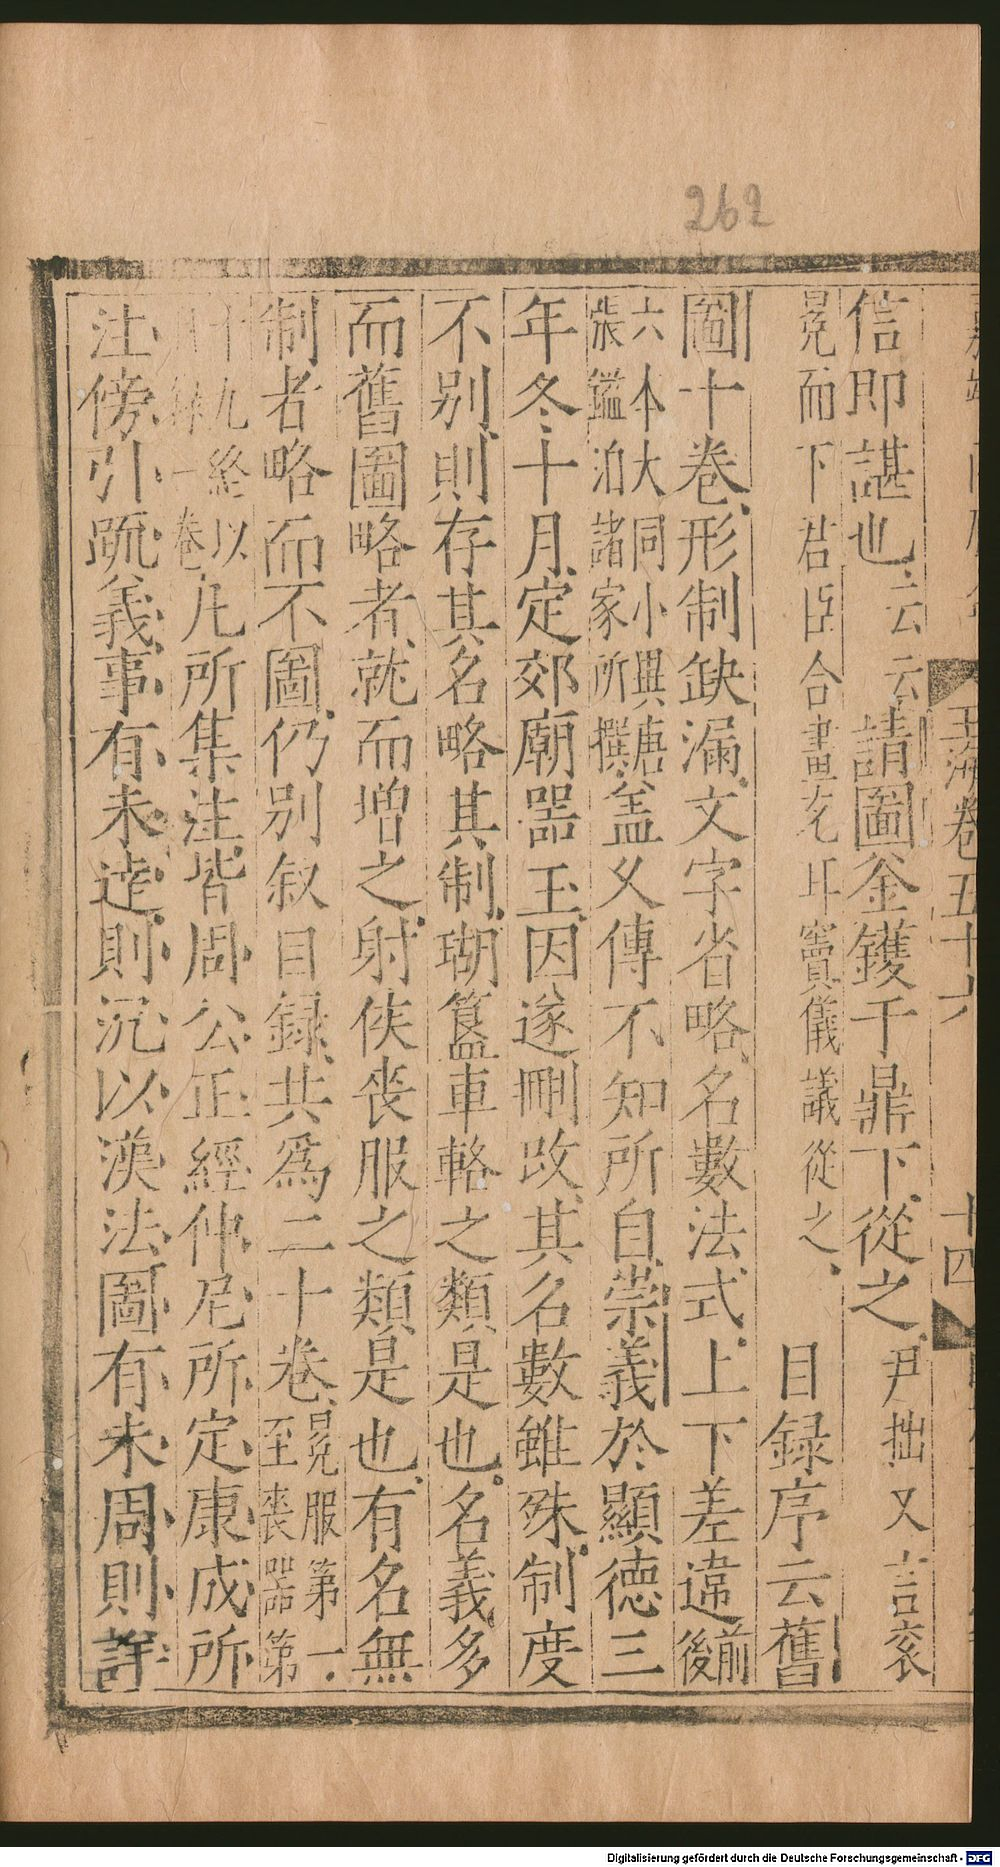 262
玉海卷五十六
十四
信即諶也云云請圖釜鑊于鼎下從之尹拙又言衮
冕而下君臣合畫充耳竇儀議從之 目録序云舊
圖十卷形制缺漏文字省略名數法式上下差違前後
六本大同小異唐張鎰洎諸家所撰盖久傳不知所自崇義於顯德三
年冬十月定郊廟噐玉因遂刪改其名數雖殊制度
不别則存其名略其制瑚簋車輅之類是也名義多
而舊圖略者就而增之射侯喪服之類是也有名無
制者略而不圖仍别叙目録共爲二十卷冕服第一至喪器第
十九經以一卷凡所集注皆周公正經仲尼所定康成所
注傍引䟽義事有未逹則沉以漢法圖有未周則詳
Digitalisierung gefördert durch die Deutsche Forschungsgemeinschaft - DFG